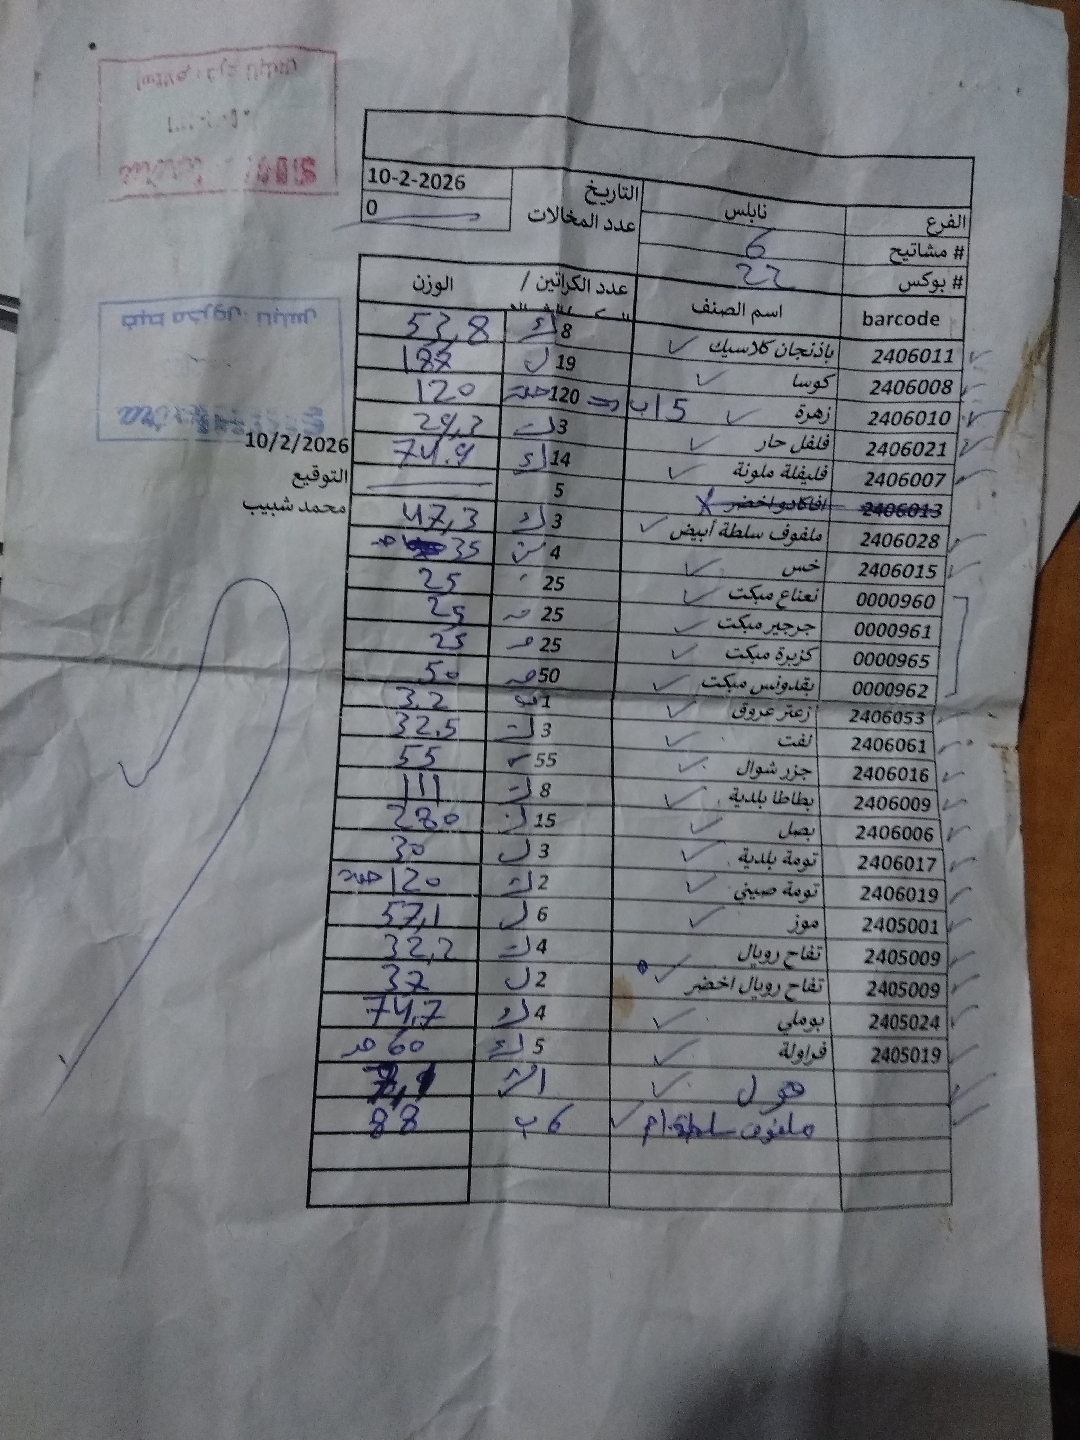 الفرع نابلس التاريخ 10-2-2026
# مشاتيح 6 عدد المخالات 0
# بوكس 22
barcode اسم الصنف عدد الكراتين / الوزن
2406011 باذنجان كلاسيك 8 53,8
2406008 كوسا 19 188
2406010 زهرة 15 120 120
2406021 فلفل حار 3 29,3
2406007 فليفلة ملونة 14 74.9
2406013 افاكادو اخضر 5
2406028 ملفوف سلطة أبيض 3 47,3
2406015 خس 4 35
0000960 نعناع مبكت 25 25
0000961 جرجير مبكت 25 25
0000965 كزبرة مبكت 25 25
0000962 بقدونس مبكت 50 50
2406053 زعتر عروق 1 3.2
2406061 لفت 3 32,5
2406016 جزر شوال 55 55
2406009 بطاطا بلدية 8 111
2406006 بصل 15 280
2406017 تومة بلدية 3 30
2406019 تومة صيني 2 120
2405001 موز 6 57,1
2405009 تفاح رويال 4 32,2
2405009 تفاح رويال اخضر 2 37
2405024 بوملي 4 74,7
2405019 فراولة 5 60
فول 1
ملفوف سلطة 6 88
10/2/2026
التوقيع
محمد شبيب